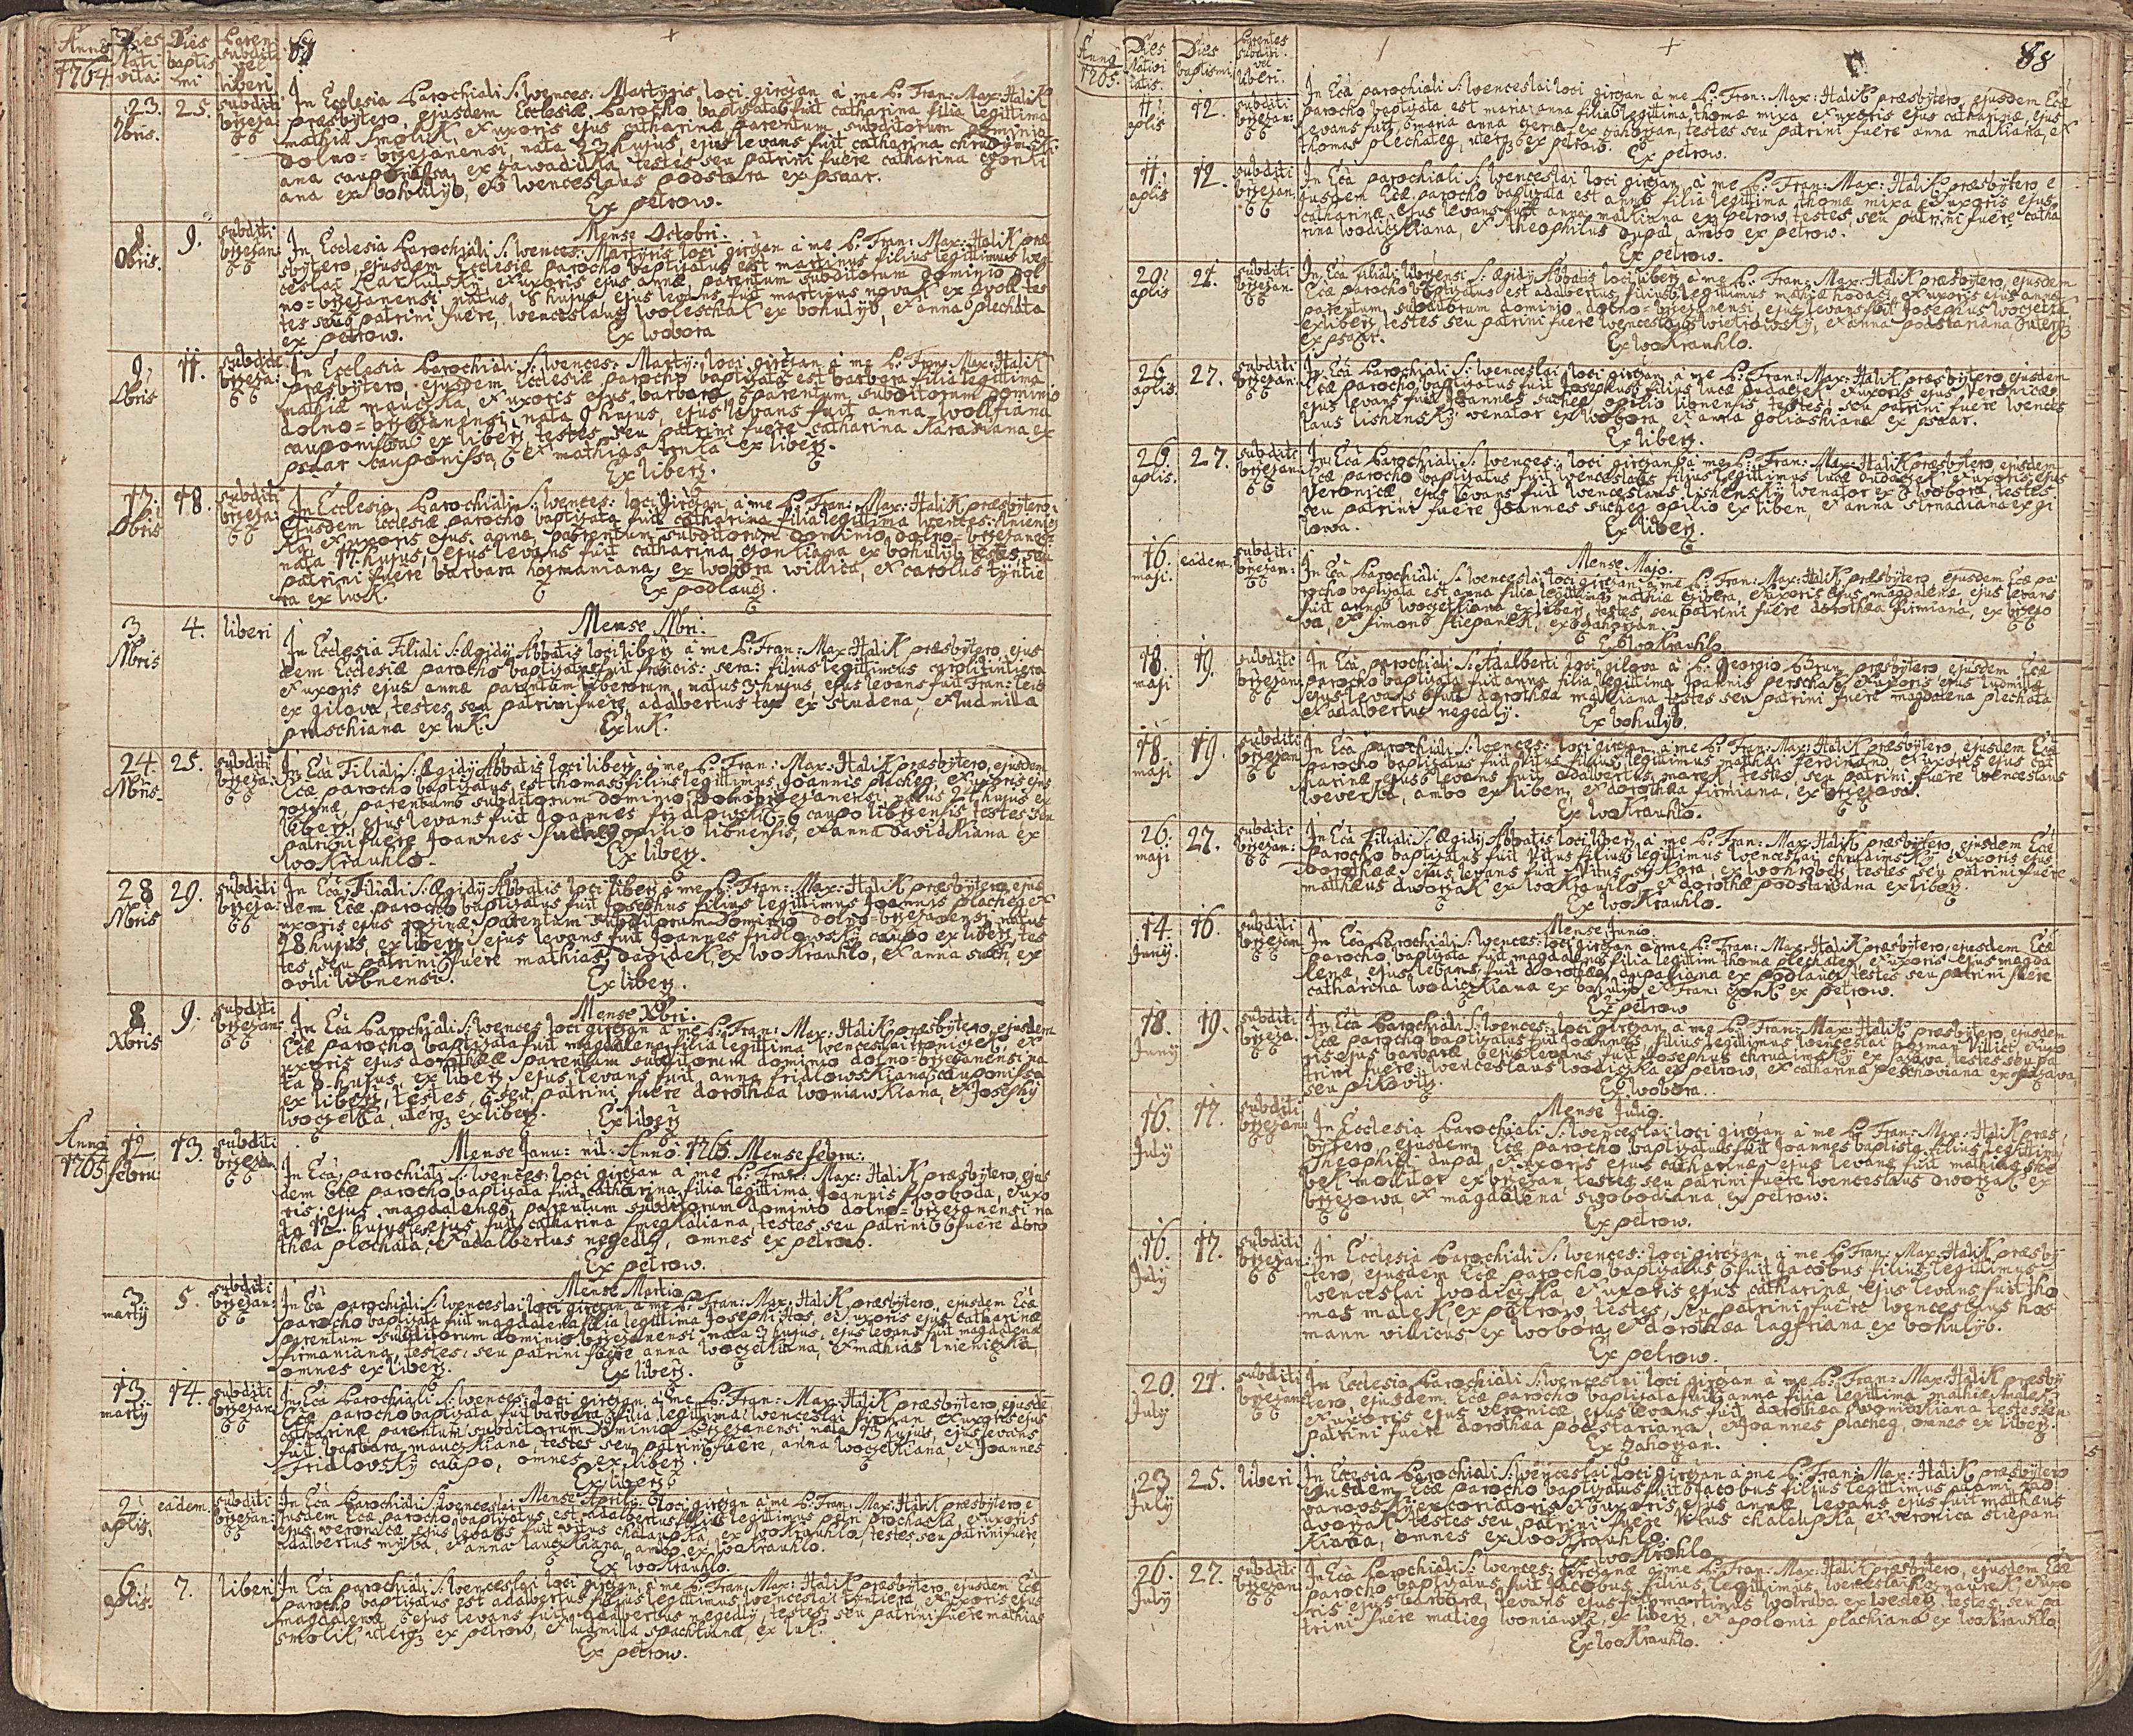 Anno 1764
Dies Nativita:
Dies baptismi
Paren: subditi vel liberi
23. 7bris. 25. subditi brzeza:
In Ecclesia Parochiali S: Wences: Martyris loci girczan à me P: Fran: Max: Halik
præsbytero, ejusdem Ecclesiæ Parocho baptizata fuit catharina filia legittima
mathiæ Smolik, et uxoris ejus catharinæ parentum subditorum dominio
dolno-brzezanensi, nata 23 hujus, ejus levans fuit catharina chrudyms:
ana cauponissa ex zawadilka testes seu patrini fuere catharina czonki
ana ex bohulyb, et wenceslaus podstara ex psaar.
Ex petrow.
Mense Octobri.
8 8bris. 9. subditi brzezan:
In Ecclesia Parochiali S: Wences: Martyris loci girczan à me P: Fran: Max: Halik præ
sbytero, ejusdem Ecclesiæ parocho baptizatus est martinus filius legittimus wen
ceslai Karlusky, et uxoris ejus annæ parentum subditorum dominio dol
no-brzezanensi natus 8 hujus, ejus levans fuit martinus novak ex tes
tes seu patrini fuere, wenceslaus woleschak ex bohulyb, et anna plechata
ex petrow.
Ex wobora
9. 8bris 11. subditi brzeza:
In Ecclesia Parochiali S: Wences: Marty: loci girczan à me P: Fran: Max: Halik
præsbytero ejusdem Ecclesiæ parocho baptizata est barbora filia legittima
mathiæ mauczka, et uxoris ejus barbaræ parentum subditorum dominio
dolno-brzezanensi nata 9 hujus, ejus levans fuit anna wollfiana
cauponissa ex liberz testes seu patrini fuere catharina Karasiana ex
psaar cauponissa, et mathias trnka ex liberz.
Ex liberz.
17. 8bris 18. subditi brzeza:
In Ecclesia Parochiali S: Wences: loci Girczan à me P: Fran: Max: Halik præsbytero,
Ejusdem Ecclesiæ parocho baptizata fuit catharina filia legittima wences: Knienicz
ka, et uxoris ejus annæ, parentum subditorum dominio dolno-brzezanensi
nata 17. hujus, ejus levans fuit catharina czonkiana ex bohulyb, testes seu
patrini fuere barbara hozmaniana, ex wobora willica, et carolus tyntie
ra ex luk.
Ex podlauz.
Mense 9bri.
3 9bris 4. liberi
In Ecclesia Filiali S: Ægidy Abbatis loci liberz à me P: Fran: Max: Halik præsbytero, ejus
dem Ecclesiæ parocho baptizatus fuit francis: sera: filius legittimus caroli tintiera
et uxoris ejus annæ parentum liberorum, natus 3 hujus, ejus levans fuit Fran: leis
ex gilova, testes, seu patrini fuere, adalbertus tax ex studena, et ludmilla
pruschiana ex luk.
Ex luk.
24. 9bris. 25. subditi brzeza:
In Ecâ Filiali S: Ægidy Abbatis loci liberz à me P: Fran: Max: Halik præsbytero, ejusdem
Ecæ parocho baptizatus est thomas filius legittimus, Joannis placheg, et uxoris ejus
rosinæ parentum subditorum dominio Dolnobrzezanensi, natus 24 hujus ex
liberz ejus levans fuit Joannes fridlowsky caupo liberzensis, testes seu
patrini fuere Joannes sucheg opilio libnensis, et anna davidkiana ex
wokrauhlo.
Ex liberz.
28 9bris 29. subditi brzeza:
In Ecâ Filiali S: Ægidy Abbatis loci liberz à me P: Fran: Max: Halik præsbytero ejus
dem Ecæ parocho baptizatus fuit Josephus filius legittimus Joannis placheg et
uxoris ejus rosinæ, parentum subditorum Dominio dolno brzezanensi natus
28 hujus, ex liberz, ejus levans fuit Joannes fridlowsky caupo ex liberz tes
tes, seu patrini fuere mathias davidek, ex wokrauhlo, et anna such, ex
ovili libnensi.
Ex liberz.
Mense Xbri.
8 Xbris 9. subditi brzezan:
In Ecâ Parochiali S: Wences: loci girczan à me P: Fran: Max: Halik præsbytero, ejusdem
Ecæ parocho baptizata fuit magdalena filia legittima wenceslai tronicžek, et
uxoris ejus dorotheæ parentum subditorum dominio dolno-brzezanensi na
ta 8 hujus, ex liberz, ejus levans fuit anna fridlowskiana cauponissa
ex liberz, testes, seu patrini fuere dorothæa woniawkiana, et Josephy
woczetka, uterq ex liberz.
Ex liberz
Anno 1765
Mense Janu: nil. Anno 1765. Mense febru:
12 febru 13. subditi brzeza:
In Ecâ parochiali S: Wences: loci girczan à me P: Fran: Max: Halik præsbytero, ejus
dem Ecæ parocho baptizata fuit catharina filia legittima Joannis swoboda, et uxo
ris ejus magdalenæ, parentum subditorum dominio dolno-brzezanensi na
ta 12. hujus, ejus fuit catharina smeykaliana, testes, seu patrini fuere doro
thæa plechata, et adalbertus negedly, omnes ex petrow.
Ex petrow.
Mense Martio
3 marty 5. subditi brzezan:
In Ecâ parochiali S: Wenceslai loci girczan à me P: Fran: Max: Halik præsbytero, ejusdem Ecæ
parocho baptizata fuit magdalena filia legittima Josephi hos, et uxoris ejus catharinæ
parentum subditorum dominio brzezanensi nata 3 hujus, ejus levans fuit magdalena
firmaniana, testes, seu patrini fuere anna woczetkiana, et mathias knieniczka
omnes ex liberz.
Ex liberz.
13 marty 14. subditi brzezan
In Ecâ Parochiali S: Wences: loci girczan, à me P: Fran: Max: Halik præsbytero, ejusde
Ecæ parocho baptizata fuit barbora, filia legittima wenceslai firman et uxoris ejus
catharinæ parentum subditorum Dominio brzezanensi nata 13 hujus, ejus levans
fuit barbara mauczkiana, testes seu patrini fuere, anna woczetkiana, et Joannes
Fridlovsky caupo, omnes ex liberz.
Ex liberz
Mense Aprili
2 aplis. eadem. subditi brzezan:
In Ecâ Parochiali S: Wenceslai loci girczan à me P: Fran: Max: Halik præsbytero, e
jusdem Ecæ parocho baptizatus est adalbertus filius legittimus petri prochaska, et uxoris
ejus veronicæ ejus levans fuit vitus chalaupka, ex wokrauhlo, testes, seu patrini fuere,
adalbertus myka, et anna lauczkiana, ambo ex wokrauhlo.
Ex wokrauhlo.
6 aplis. 7. liberi
In Ecâ parochiali S: Wenceslai loci girczan, à me P: Fran: Max: Halik præsbytero, ejusdem Ecæ
parocho baptizatus est adalbertus filius legittimus wenceslai tintiera, et uxoris ejus
magdalenæ, ejus levans fuit adalbertus negedly, testes, seu patrini fuere mathias
smolik, uterq ex petrow, et ludmilla spachtiana, ex luk.
Ex petrow.
Anno 1765.
Dies Nativitatis.
Dies baptismi
Parentes subditi vel liberi.
88
11. aplis 12. subditi brzezan:
In Ecâ parochiali S: Wenceslai loci girczan à me P: Fran: Max: Halik præsbytero, ejusdem Ecæ
parocho baptizata est maria anna filia legittima, thomæ mixa et uxoris ejus catharinæ, ejus
levans fuit maria anna czerna, ex zahorzan, testes seu patrini fuere anna malkiana, et
thomas plechateg, uterq ex petrow.
Ex petrow.
11. aplis 12. subditi brzezan
In Ecâ parochiali S: Wenceslai loci girczan à me P: Fran: Max: Halik præsbytero e
jusdem Ecæ parocho baptizata est anna filia legittima thomæ mixa et uxoris ejus
catharinæ, ejus levans fuit anna malkiana ex petrow, testes, seu patrini fuere catha
rina wodiczkiana, et theophilus dupal ambo ex petrow.
Ex petrow.
20. aplis 21. subditi brzezan
In Ecâ Filiali liberzensi S: Ægidy Abbatis loci liberz à me P: Fran: Max: Halik præsbytero, ejusdem
Ecæ parocho baptizatus est adalbertus filius legittimus mathiæ hodač, et uxoris ejus annæ
parentum subditorum dominio dolno-brzezanensi, ejus levans fuit Josephus woczetka
ex liberz, testes seu patrini fuere wenceslaus wietrowsky, et anna podstariana, uterq
ex psaar.
Ex wokrauhlo.
26 aplis. 27. subditi brzezan:
In Ecâ Parochiali S: Wenceslai loci girczan à me P: Fran: Max: Halik præsbytero, ejusdem
Ecæ parocho baptizatus fuit Josephus filius lucæ dudaczek et uxoris ejus veronicæ,
ejus levans fuit Joannes sucheg opilio libnensis testes, seu patrini fuere wences
laus lishensky venator ex wobora, et anna goliashiana ex psaar.
Ex liberz.
26 aplis. 27. subditi brzezan
In Ecâ Parochiali S: Wences: loci girczan à me P: Fran: Max: Halik præsbytero, ejusdem
Ecæ parocho baptizatus fuit wenceslaus filius legittimus lucæ dudaczek et uxoris ejus
veronicæ, ejus levans fuit wenceslaus lishensky wenator ex wobora, testes,
seu patrini fuere Joannes sucheg opilio ex liben, et anna strnadiana ex gi
lowa.
Ex liberz.
Mense Majo.
16. maji. eadem. subditi brzezan:
In Ecâ Parochiali S: Wenceslai loci girczan à me P: Fran: Max: Halik præsbytero, ejusdem Ecæ pa
rocho baptizata est anna filia legittima mathiæ czibera, et uxoris ejus magdalenæ, ejus levans
fuit anna woczetkiana ex liberz, testes, seu patrini fuere dorothæa firmiana, ex brzezo
va, et simone stiepanek, ex zahorzan.
Ex wokrauhlo
18. maji 19. subditi brzezan
In Ecâ parochiali S: Adalberti loci gilova à P: Georgio Brun præsbytero ejusdem Ecæ
parocho baptizata fuit anna filia legittima Joannis perschak et uxoris ejus ludmillæ
ejus levans fuit dorothæa malkiana testes seu patrini fuere magdalena plechata
et adalbertus negedly.
Ex bohulyb.
18. maji 19. subditi brzezan
In Ecâ parochiali S: Wences: loci girczan, à me P: Fran: Max: Halik præsbytero, ejusdem Ecæ
parocho baptizatus fuit vitus filius legittimus mathæi ferdinand et uxoris ejus cat
harinæ, ejus levans fuit adalbertus marek, testes, seu patrini fuere wenceslaus
weverka, ambo ex liben, et dorothæa firmiana, ex brzezova.
Ex wokrauhlo.
26. maji 27. subditi brzezan:
In Ecâ Filiali S: Ægidy Abbatis loci liberz à me P: Fran: Max: Halik præsbytero, ejusdem Ecæ
Parocho baptizatus fuit Vitus filius legittimus wenceslai chrudimsky et uxoris ejus
Dorotheæ ejus levans fuit Vitus sykora, ex wohrobetz, testes, seu patrini fuere
mathæus dworzak ex wokrauhlo, et dorothæ podstarodna ex liberz.
Ex wokrauhlo.
Mense Junio.
14. Juny. 16. subditi brzezan
In Ecâ Parochiali S: Wences: loci girczan à me P: Fran: Max: Halik præsbytero, ejusdem Ecæ
parocho, baptizata fuit magdalena filia legittim thomæ plechateg, et uxoris ejus magda
lenæ, ejus levans fuit dorothæa, dupaliana ex podlauz, testes seu patrini fuere
catharina wodiczkiana ex bohulyb et Fran: czonk ex petrow.
Ex petrow
18. Juny 19. subditi brzeza.
In Ecâ Parochiali S: Wences: loci girczan à me P: Fran: Max: Halik præsbytero, ejusdem
Ecæ parocho baptizatus fuit Joannes, filius legittimus wenceslai hozman villici, et uxo
ris ejus barbaræ, ejus levans fuit Josephus chrudimsky ex sazava, testes seu pa
trini fuere, wenceslaus wodiczka ex petrow, et catharina peschoviana ex sazava,
seu pikovitz.
Ex wobora.
Mense Julio.
16. July 17. subditi brzezan:
In Ecclesia Parochiali S: Wenceslai loci girczan à me P: Fran: Max: Halik præs
bytero, ejusdem Ecæ parocho baptizatus fuit Joannes baptista filius legittimus
Theophili dupal, et uxoris ejus catharinæ, ejus levans fuit mathias ske
bek molitor ex brzezan testes seu patrini fuere wenceslaus dworzak ex
brzezowa, et magdalena swobodiana, ex petrow.
Ex petrow.
16. July 17. subditi brzezan:
In Ecclesia Parochiali S: Wences: loci girczan, à me P: Fran: Max: Halik præsby
tero, ejusdem Ecæ parocho baptizatus fuit Jacobus filius legittimus
wenceslai wodiczka, et uxoris ejus catharinæ, ejus levans fuit tho
mas malek, ex petrow, testes, seu patrini fuere wenceslaus hos
mann villicus ex wobora, et dorothæa lagsriana ex bohulyb.
Ex petrow.
20. July 21. subditi brzezan
In Ecclesia Parochiali S: Wenceslai loci girczan à me P: Fran: Max: Halik præsby
tero ejusdem Ecæ parocho baptizata fuit anna filia legittima mathiæ malek
et uxoris ejus veronicæ, ejus levans fuit dorothæa woniawkiana testes seu
patrini fuere dorothæa podstariana, et Joannes placheg, omnes ex liberz.
Ex zahorzan.
23 July 25. liberi
In Ecclesia Parochiali S: Wenceslai loci girczan à me P: Fran: Max: Halik præsbytero
ejusdem Ecæ parocho baptizatus fuit Jacobus filius legittimus adami rad
vanovsky excoriatoris et uxoris ejus annæ levans ejus fuit matthæus
dworzak testes seu patrini fuere Vitus chalaupka, et veronica stiepan
kiana, omnes ex wokrauhlo.
Ex wokrohlo
26. July 27. subditi brzezan
In Ecâ Parochiali S: Wences: girczanæ à me P: Fran: Max: Halik præsbytero, ejusdem Ecæ
parocho baptizatus fuit Jacobus filius legittimus, wenceslai et uxo
ris ejus barboræ, levans ejus fuit martinus wotruba ex testes, seu pa
trini fuere matieg woniawka, ex liberz, et apolonia plachiana ex wokrauhlo
Ex wokrauhlo.